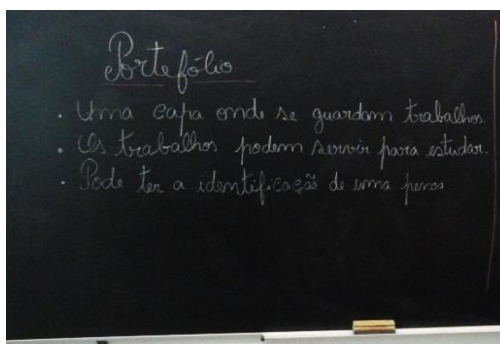 Portefólio
. Uma capa onde se guardam trabalhos.
. Os trabalhos podem servir para estudar.
. Pode ter a identificação de uma